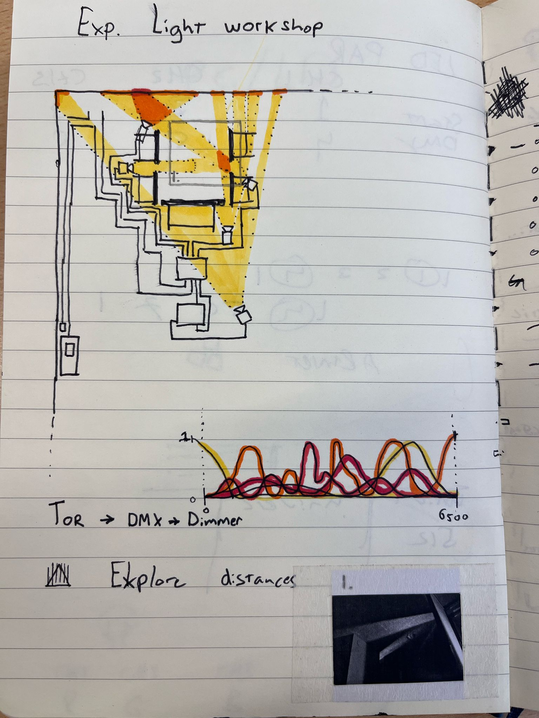 Exp. Light workshop
1
0
0
6500
TOR → DMX → Dimmer
Explore distances
1.